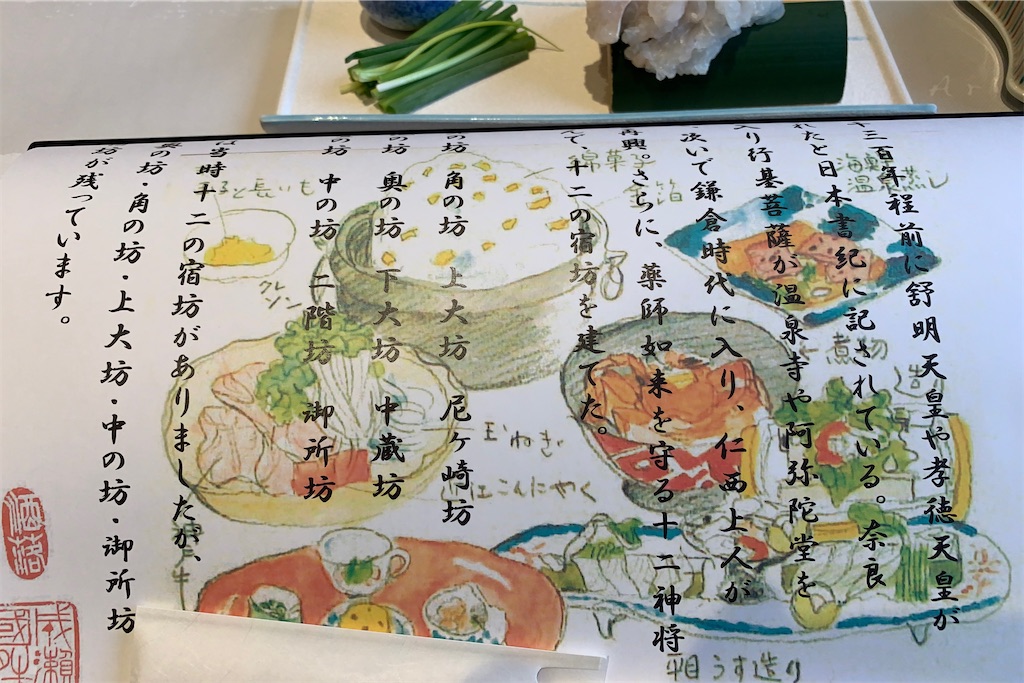 十三百年程前に舒明天皇や孝徳天皇が
れたと日本書紀に記されている。奈良
り行基菩薩が温泉寺や阿弥陀堂を
次いで鎌倉時代に入り、仁西上人が
再興。さらに、薬師如来を守る十二神将
て、十二の宿坊を建てた。
の坊 角の坊 上大坊 尼ヶ崎坊
の坊 奥の坊 下大坊 中蔵坊
の坊 中の坊 二階坊 御所坊
当時十二の宿坊がありましたが、
の坊・角の坊・上大坊・中の坊・御所坊
坊が残っています。
綿菓子
金箔
温 蒸し
煮物
造り
と長いも
クレソン
玉ねぎ
紅こんにゃく
牛
平目うす造り
洒落